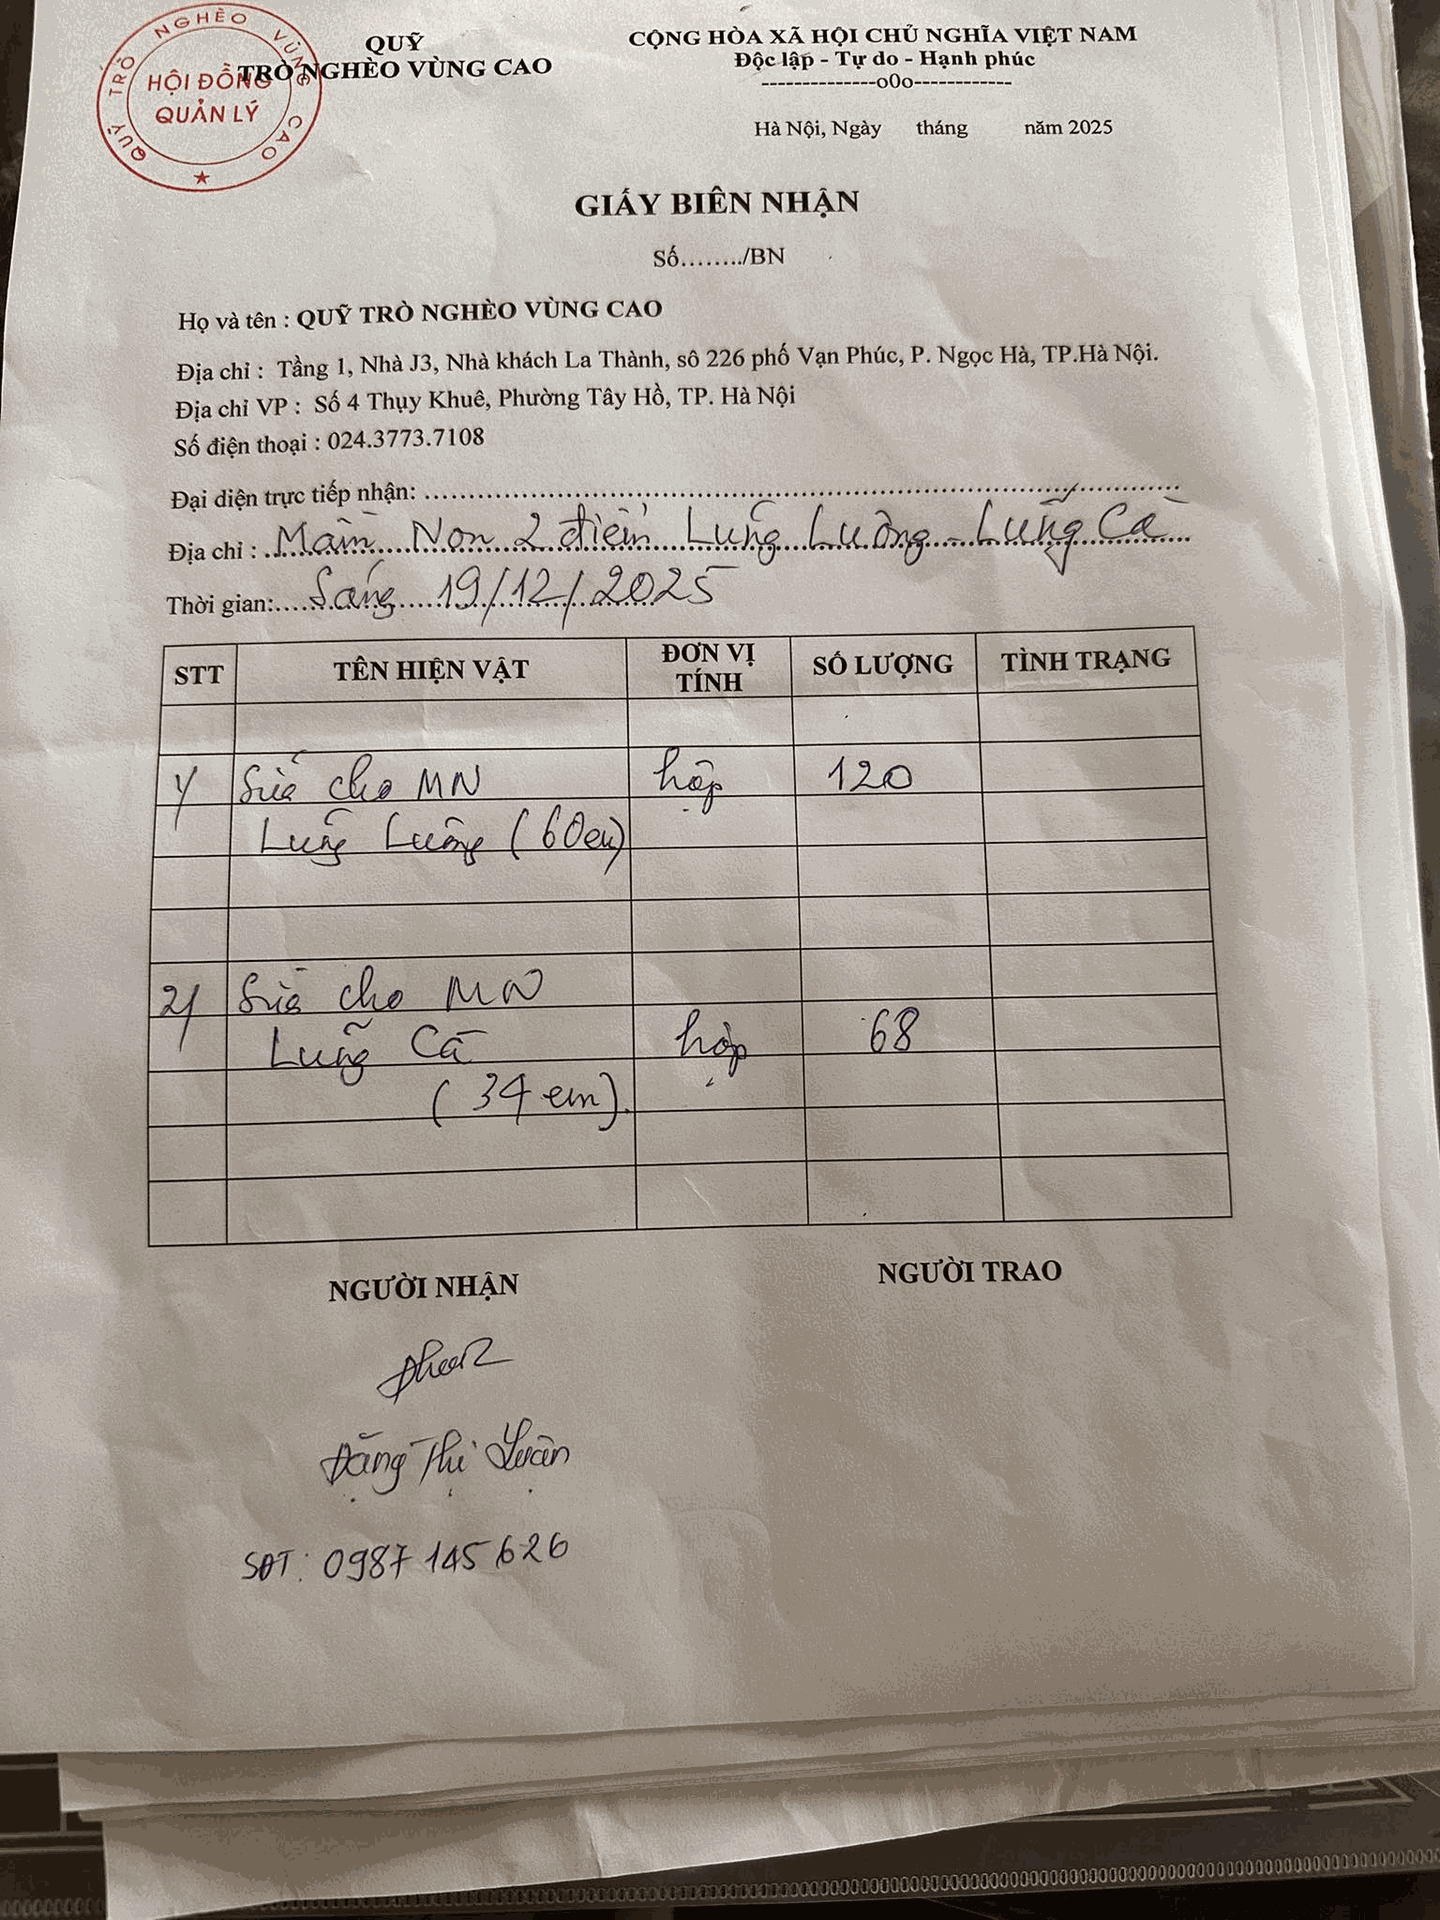 QUỸ TRÒ NGHÈO VÙNG CAO
HỘI ĐỒNG
QUẢN LÝ
QUỸ
TRÒ NGHÈO VÙNG CAO
CỘNG HÒA XÃ HỘI CHỦ NGHĨA VIỆT NAM
Độc lập - Tự do - Hạnh phúc
--------------o0o------------
Hà Nội, Ngày tháng năm 2025
GIẤY BIÊN NHẬN
Số......../BN
Họ và tên : QUỸ TRÒ NGHÈO VÙNG CAO
Địa chỉ : Tầng 1, Nhà J3, Nhà khách La Thành, sô 226 phố Vạn Phúc, P. Ngọc Hà, TP.Hà Nội.
Địa chỉ VP : Số 4 Thụy Khuê, Phường Tây Hồ, TP. Hà Nội
Số điện thoại : 024.3773.7108
Đại diện trực tiếp nhận:
Địa chỉ : Mầm Non 2 điểm Lũng Luông - Lũng Cà
Thời gian: Sáng 19/12/2025
STT TÊN HIỆN VẬT ĐƠN VỊ TÍNH SỐ LƯỢNG TÌNH TRẠNG
1/ Sữa cho MN hộp 120
Lũng Luông (60em)
2/ Sữa cho MN
Lũng Cà hộp 68
(34 em).
NGƯỜI NHẬN NGƯỜI TRAO
Đặng Thị
SĐT: 0987 145 626